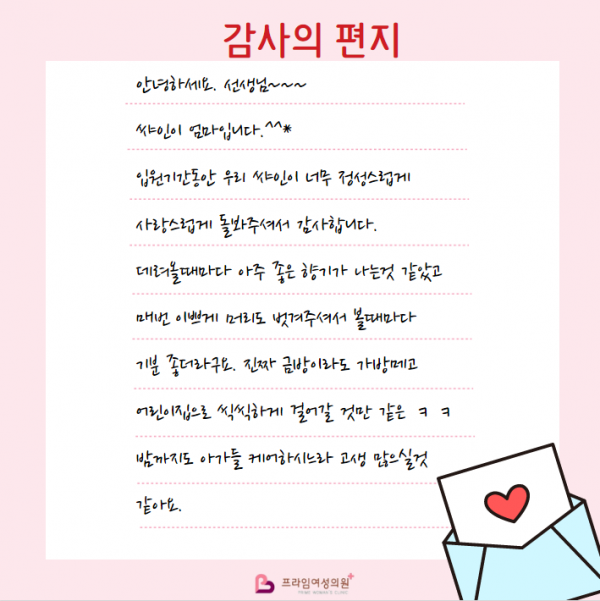 감사의 편지
안녕하세요. 선생님~~~
쌰인이 엄마입니다.^^*
입원기간동안 우리 쌰인이 너무 정성스럽게
사랑스럽게 돌봐주셔서 감사합니다.
데려올때마다 아주 좋은 향기가 나는것 같았고
매번 이쁘게 머리도 벗겨주셔서 볼때마다
기분 좋더라구요. 진짜 금방이라도 가방메고
어린이집으로 씩씩하게 걸어갈 것만 같은 ㅋ ㅋ
밤까지도 아가들 케어하시느라 고생 많으실것
같아요.
프라임여성의원
PRIME WOMEN'S CLINIC